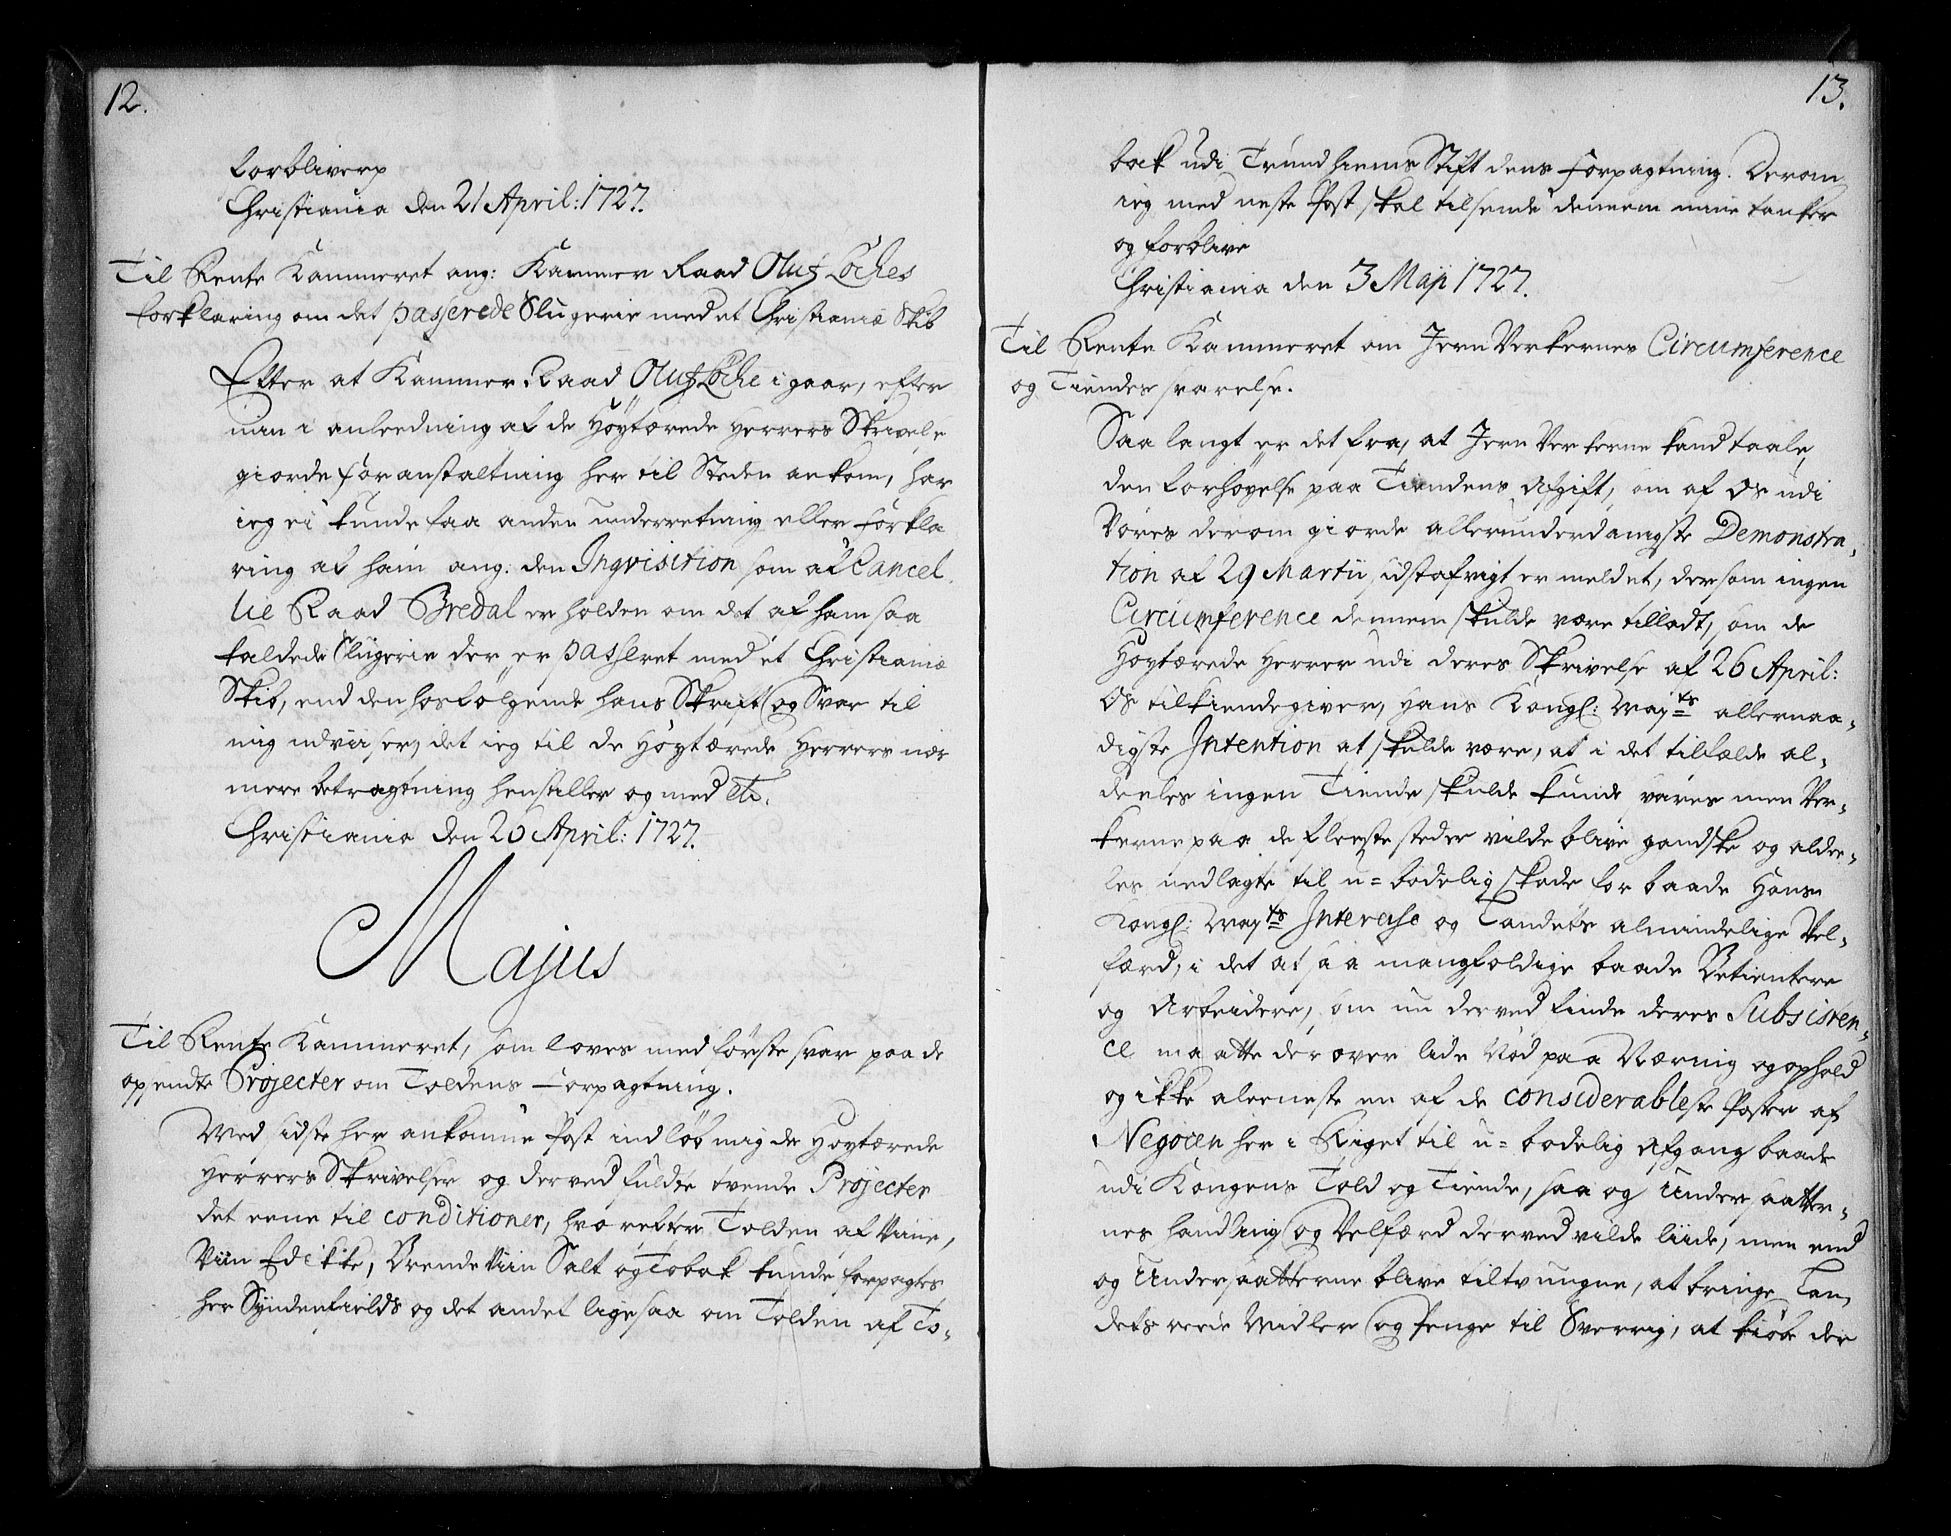 12.
forbliver
Christiania den 21 April: 1727.
Til Rente Kammeret ang: Kammer Raad Oluf Løches
forklaring om det passerede Slugerie med et Christianiæ Skib
Efter at Kammer Raad Oluf Løche i gaar, efter
min i anleedning af de Høytærede Herrers Skrivelse
giorde foranstaltning her til Steden ankom, har
ieg ei kunde faa anden underretning eller forkla
ring af ham ang: den Inqvisition som af Cancel
lie Raad Bredal er holden om det af ham saa
kaldede Slugerie der er passeret med et Christianiæ
Skib, end den hosfølgende hans Skrift og Svar til
mig udviiser, det ieg til de Høytærede Herrers nær
mere betragtning henstiller og med etc.
Christiania den 26 April: 1727.
Majus
Til Rente Kammeret, som loves med første svar paa de
opsendte Projecter om Toldens forpagtning.
Med sidste her ankomne Post indløb mig de Høytærede
Herrers Skrivelse og derved fuldte tvende Projecter
det eene til conditioner, hvorefter Tolden af Viine,
Viin Edikke, Brende Viin Salt og Tobak kunde forpagtes
her Syndenfields og det andet ligesaa om Tolden af To-
13.
back udi Trundhiems Stift dens forpagtning. Derom
ieg med neste Post skal tilsende dennem mine tanker
og forblive
Christiania den 3 Maji 1727.
Til Rente Kammeret om Jern Verkernes Circumference
og Tiendes svarelse.
Saa langt er det fra, at Jern Verkerne kand taale
den forhøyelse paa Tiendens Afgift, som af Os udi
Vores derom giorde allerunderdanigste Demonstra-
tion af 29 Martii sidst afvigt er meldet, dersom ingen
Circumference dennem skulde være tilladt, som de
Høytærede Herrer udi deres Skrivelse af 26 April:
Os tilkiendegiver, Hans Kongl: Mayts allernaa-
digste Intention at skulde være, at i det tilfælde al-
deeles ingen Tiende skulde kunde svares men Ver-
kerne paa de fleeste steder vilde blive gandske og aldee-
les nedlagte til u=bodelig skade for baade Hans
Kongl: Mayts Interesse og Landets almindelige Vel-
færd, i det at saa mangfoldige baade Betientere
og Arbeidere, som nu derved finde deres Subsisten-
ce maatte derover lide Nød paa Næring og ophold
og ikke aleeneste en af de considerableste Poster af
Negocen her i Riget til u=bodelig Afgang baade
udi Kongens Told og Tiende, saa og Undersaatter-
nes handling og Velfærd derved vilde liide, men end
og Undersaatterne blive tiltvungne, at bringe Lan-
dets reede Midler og Penge til Sverrig, at kiøbe der